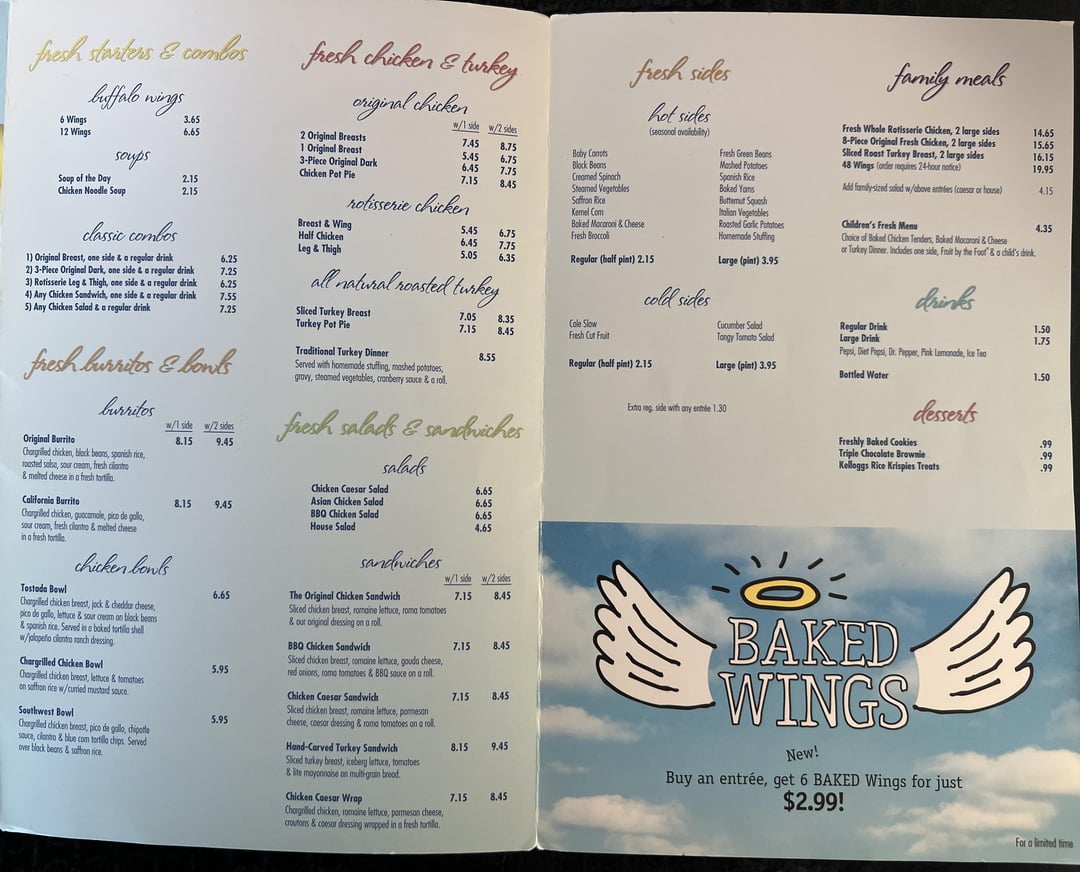 fresh starters & combos
buffalo wings
6 Wings 3.65
12 Wings 6.65
soups
Soup of the Day 2.15
Chicken Noodle Soup 2.15
classic combos
1) Original Breast, one side & a regular drink 6.25
2) 3-Piece Original Dark, one side & a regular drink 7.25
3) Rotisserie Leg & Thigh, one side & a regular drink 6.25
4) Any Chicken Sandwich, one side & a regular drink 7.55
5) Any Chicken Salad & a regular drink 7.25
fresh burritos & bowls
burritos
w/1 side w/2 sides
Original Burrito 8.15 9.45
Chargrilled chicken, black beans, spanish rice,
roasted salsa, sour cream, fresh cilantro
& melted cheese in a fresh tortilla.
California Burrito 8.15 9.45
Chargrilled chicken, guacamole, pico de gallo,
sour cream, fresh cilantro & melted cheese
in a fresh tortilla.
chicken bowls
Tostada Bowl 6.65
Chargrilled chicken breast, jack & cheddar cheese,
pico de gallo, lettuce & sour cream on black beans
& spanish rice. Served in a baked tortilla shell
w/jalapeño cilantro ranch dressing.
Chargrilled Chicken Bowl 5.95
Chargrilled chicken breast, lettuce & tomatoes
on saffron rice w/curried mustard sauce.
Southwest Bowl 5.95
Chargrilled chicken breast, pico de gallo, chipotle
sauce, cilantro & blue corn tortilla chips. Served
over black beans & saffron rice.
fresh chicken & turkey
original chicken
w/1 side w/2 sides
2 Original Breasts 7.45 8.75
1 Original Breast 5.45 6.75
3-Piece Original Dark 6.45 7.75
Chicken Pot Pie 7.15 8.45
rotisserie chicken
Breast & Wing 5.45 6.75
Half Chicken 6.45 7.75
Leg & Thigh 5.05 6.35
all natural roasted turkey
Sliced Turkey Breast 7.05 8.35
Turkey Pot Pie 7.15 8.45
Traditional Turkey Dinner 8.55
Served with homemade stuffing, mashed potatoes,
gravy, steamed vegetables, cranberry sauce & a roll.
fresh salads & sandwiches
salads
Chicken Caesar Salad 6.65
Asian Chicken Salad 6.65
BBQ Chicken Salad 6.65
House Salad 4.65
sandwiches
w/1 side w/2 sides
The Original Chicken Sandwich 7.15 8.45
Sliced chicken breast, romaine lettuce, roma tomatoes
& our original dressing on a roll.
BBQ Chicken Sandwich 7.15 8.45
Sliced chicken breast, romaine lettuce, gouda cheese,
red onions, roma tomatoes & BBQ sauce on a roll.
Chicken Caesar Sandwich 7.15 8.45
Sliced chicken breast, romaine lettuce, parmesan
cheese, caesar dressing & roma tomatoes on a roll.
Hand-Carved Turkey Sandwich 8.15 9.45
Sliced turkey breast, iceberg lettuce, tomatoes
& lite mayonnaise on multi-grain bread.
Chicken Caesar Wrap 7.15 8.45
Chargrilled chicken, romaine lettuce, parmesan cheese,
croutons & caesar dressing wrapped in a fresh tortilla.
fresh sides
hot sides
(seasonal availability)
Baby Carrots
Black Beans
Creamed Spinach
Steamed Vegetables
Saffron Rice
Kernel Corn
Baked Macaroni & Cheese
Fresh Broccoli
Fresh Green Beans
Mashed Potatoes
Spanish Rice
Baked Yams
Butternut Squash
Italian Vegetables
Roasted Garlic Potatoes
Homemade Stuffing
Regular (half pint) 2.15 Large (pint) 3.95
cold sides
Cole Slaw
Fresh Cut Fruit
Cucumber Salad
Tangy Tomato Salad
Regular (half pint) 2.15 Large (pint) 3.95
Extra reg. side with any entrée 1.30
family meals
Fresh Whole Rotisserie Chicken, 2 large sides 14.65
8-Piece Original Fresh Chicken, 2 large sides 15.65
Sliced Roast Turkey Breast, 2 large sides 16.15
48 Wings (order requires 24-hour notice) 19.95
Add family-sized salad w/above entrées (caesar or house) 4.15
Children's Fresh Menu 4.35
Choice of Baked Chicken Tenders, Baked Macaroni & Cheese
or Turkey Dinner. Includes one side, Fruit by the Foot® & a child's drink.
drinks
Regular Drink 1.50
Large Drink 1.75
Pepsi, Diet Pepsi, Dr. Pepper, Pink Lemonade, Ice Tea
Bottled Water 1.50
desserts
Freshly Baked Cookies .99
Triple Chocolate Brownie .99
Kelloggs Rice Krispies Treats .99
BAKED
WINGS
New!
Buy an entrée, get 6 BAKED Wings for just
$2.99!
For a limited time